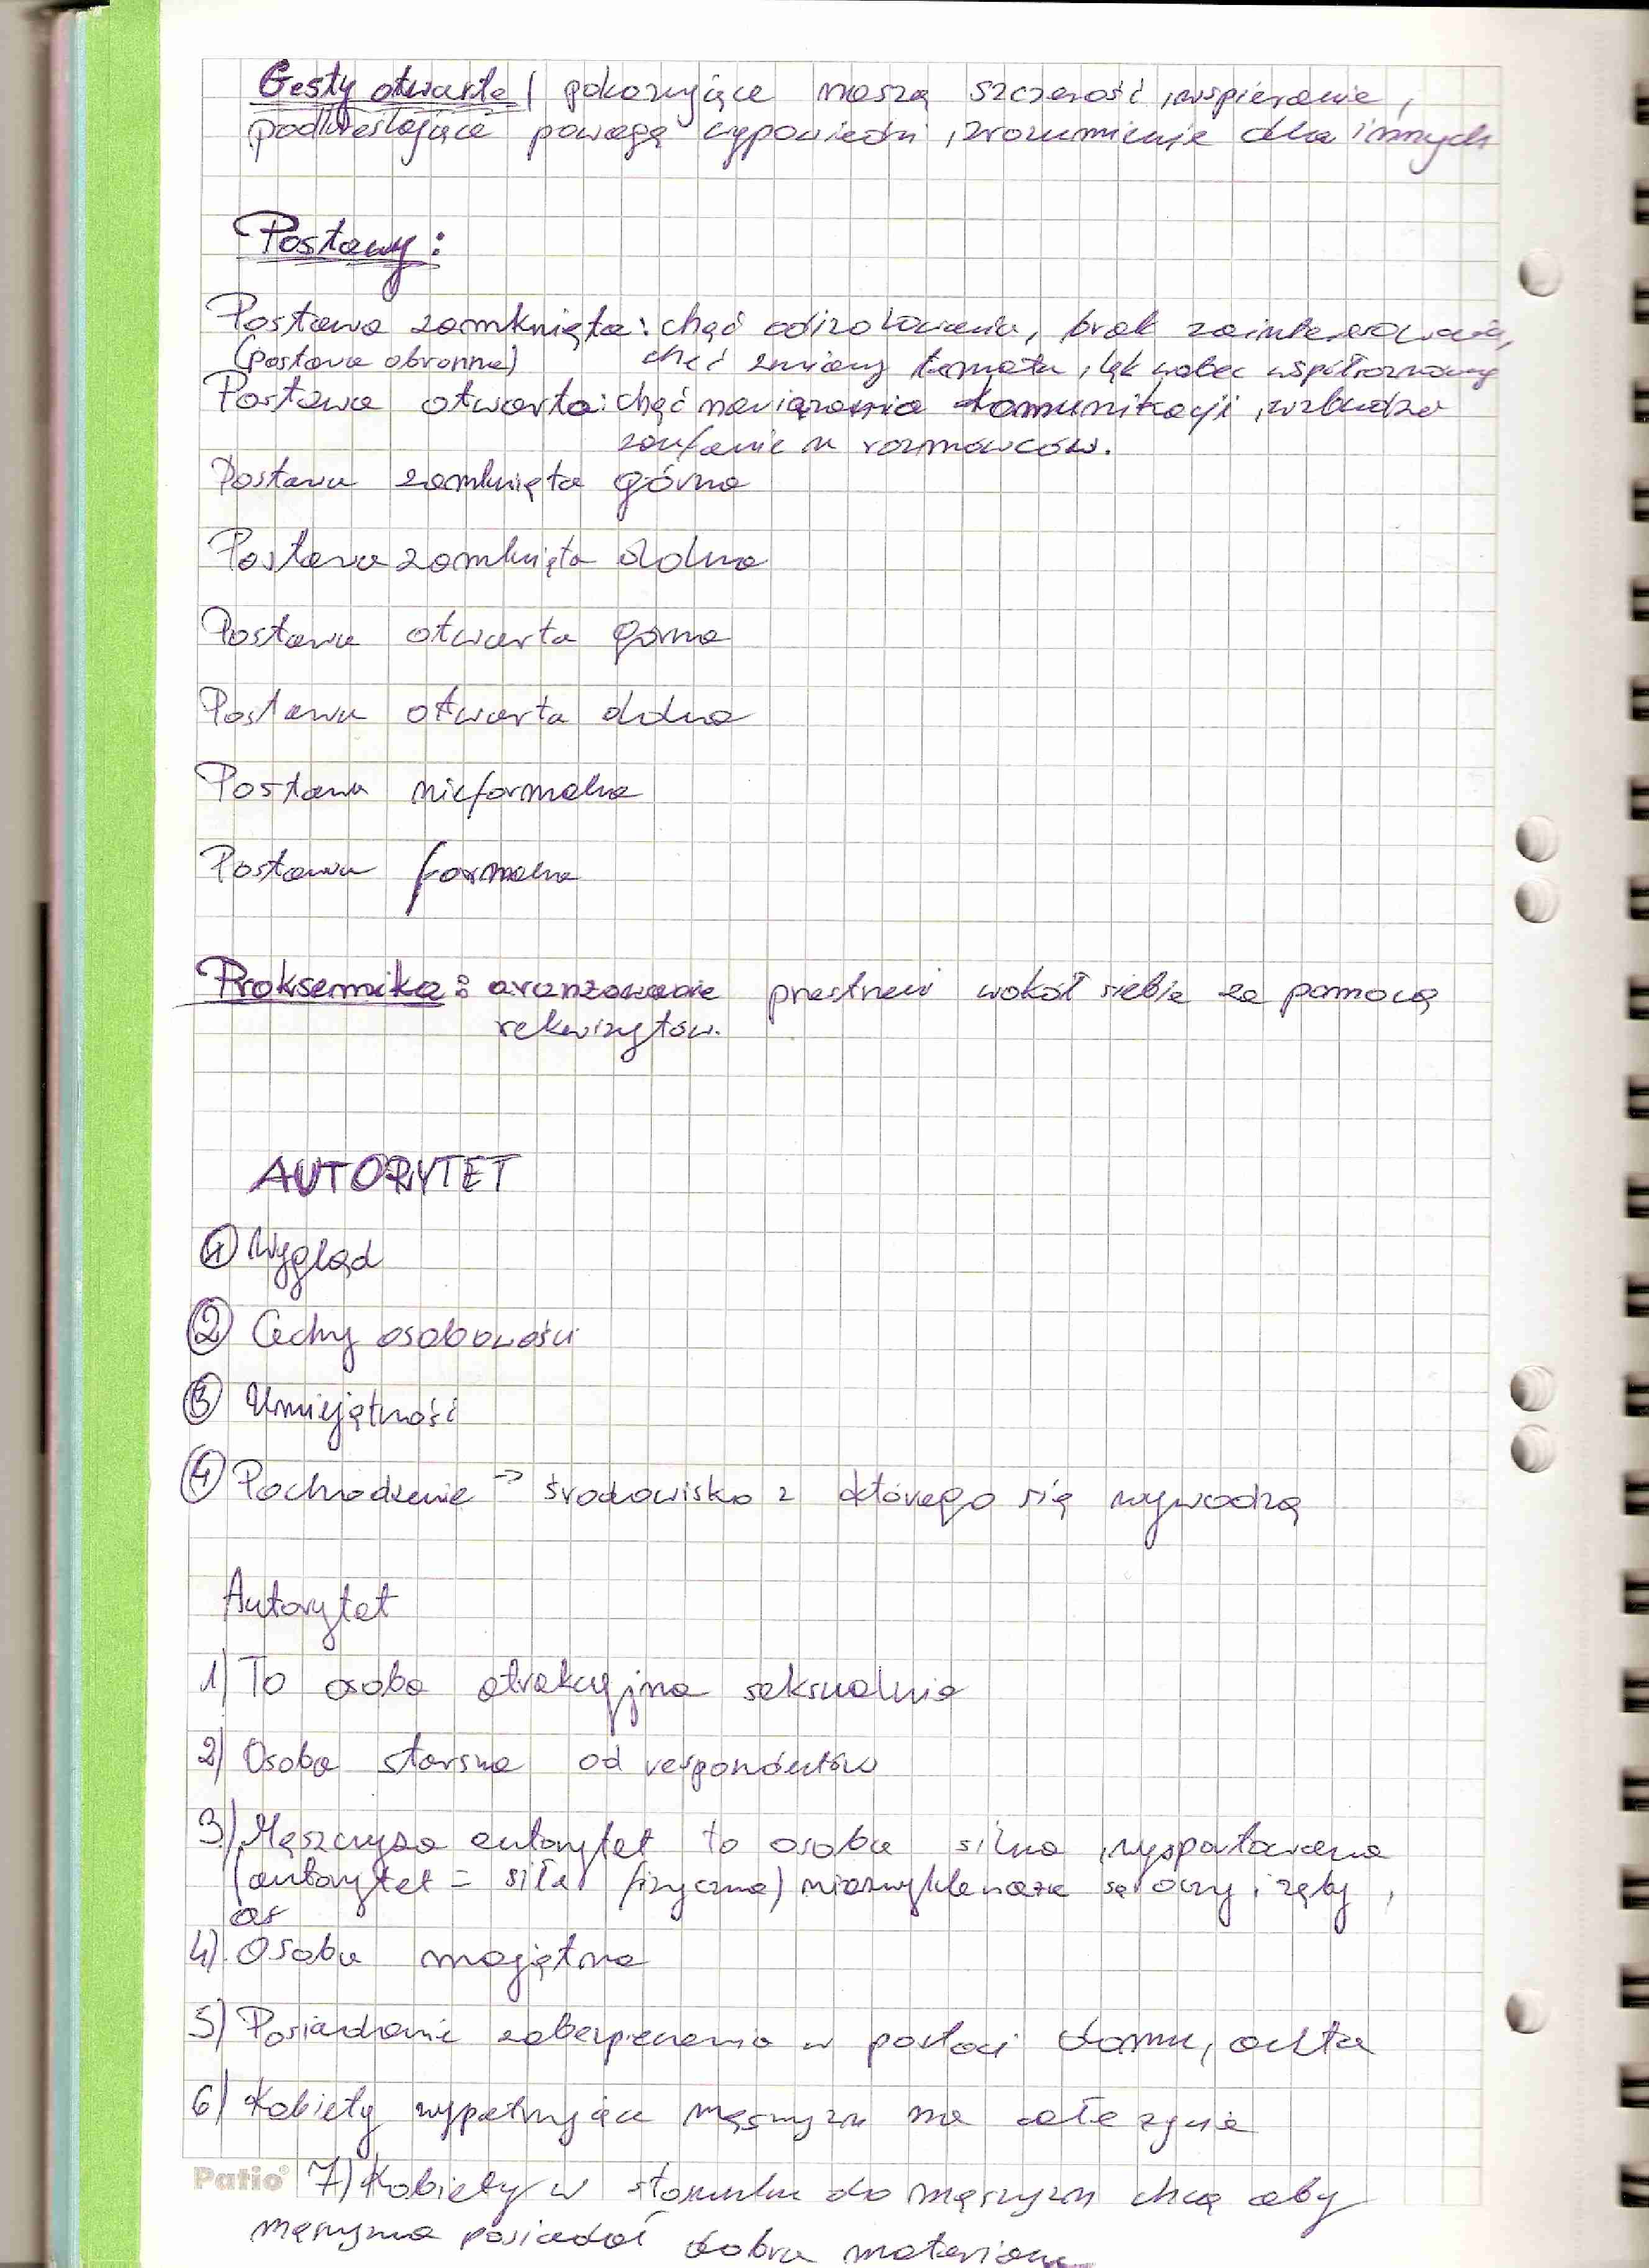 Gesty otwarte | pokazujące naszą szczerość, wspieranie,
podkreślające powagę wypowiedzi, zrozumienie dla innych
Postawy:
Postawa zamknięta: chęć odizolowania, brak zainteresowania,
(postawa obronna) chęć zmiany tematu, lęk wobec współrozmówcy
Postawa otwarta: chęć nawiązania komunikacji, wzbudza
zaufanie u rozmówców.
Postawa zamknięta górna
Postawa zamknięta dolna
Postawa otwarta górna
Postawa otwarta dolna
Postawa nieformalna
Postawa formalna
Proksemika: aranżowanie przestrzeni wokół siebie za pomocą
rekwizytów.
AUTORYTET
1 Wygląd
2 Cechy osobowości
3 Umiejętności
4 Pochodzenie → środowisko z którego się wywodzą
Autorytet
1) To osoba atrakcyjna seksualnie
2) Osoba starsza od respondentów
3) Męszczyza autorytet to osoba silna, wysportowana
(autorytet = siła fizyczna) niezwykle ważne są oczy i zęby,
4) Osoba majętna
5) Posiadanie zabezpieczenia w postaci domu, auta
6) Kobiety wypatrujące męszczyzn na całe życie
Patio® 7) Kobiety w stosunku do męszczyzn chcą aby
męszczyzna posiadał dobra materialne